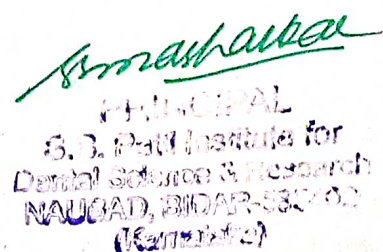 PRINCIPAL
S. B. Patil Institute for
Dental Science & Research
NAUBAD, BIDAR-585402
(Karnataka)